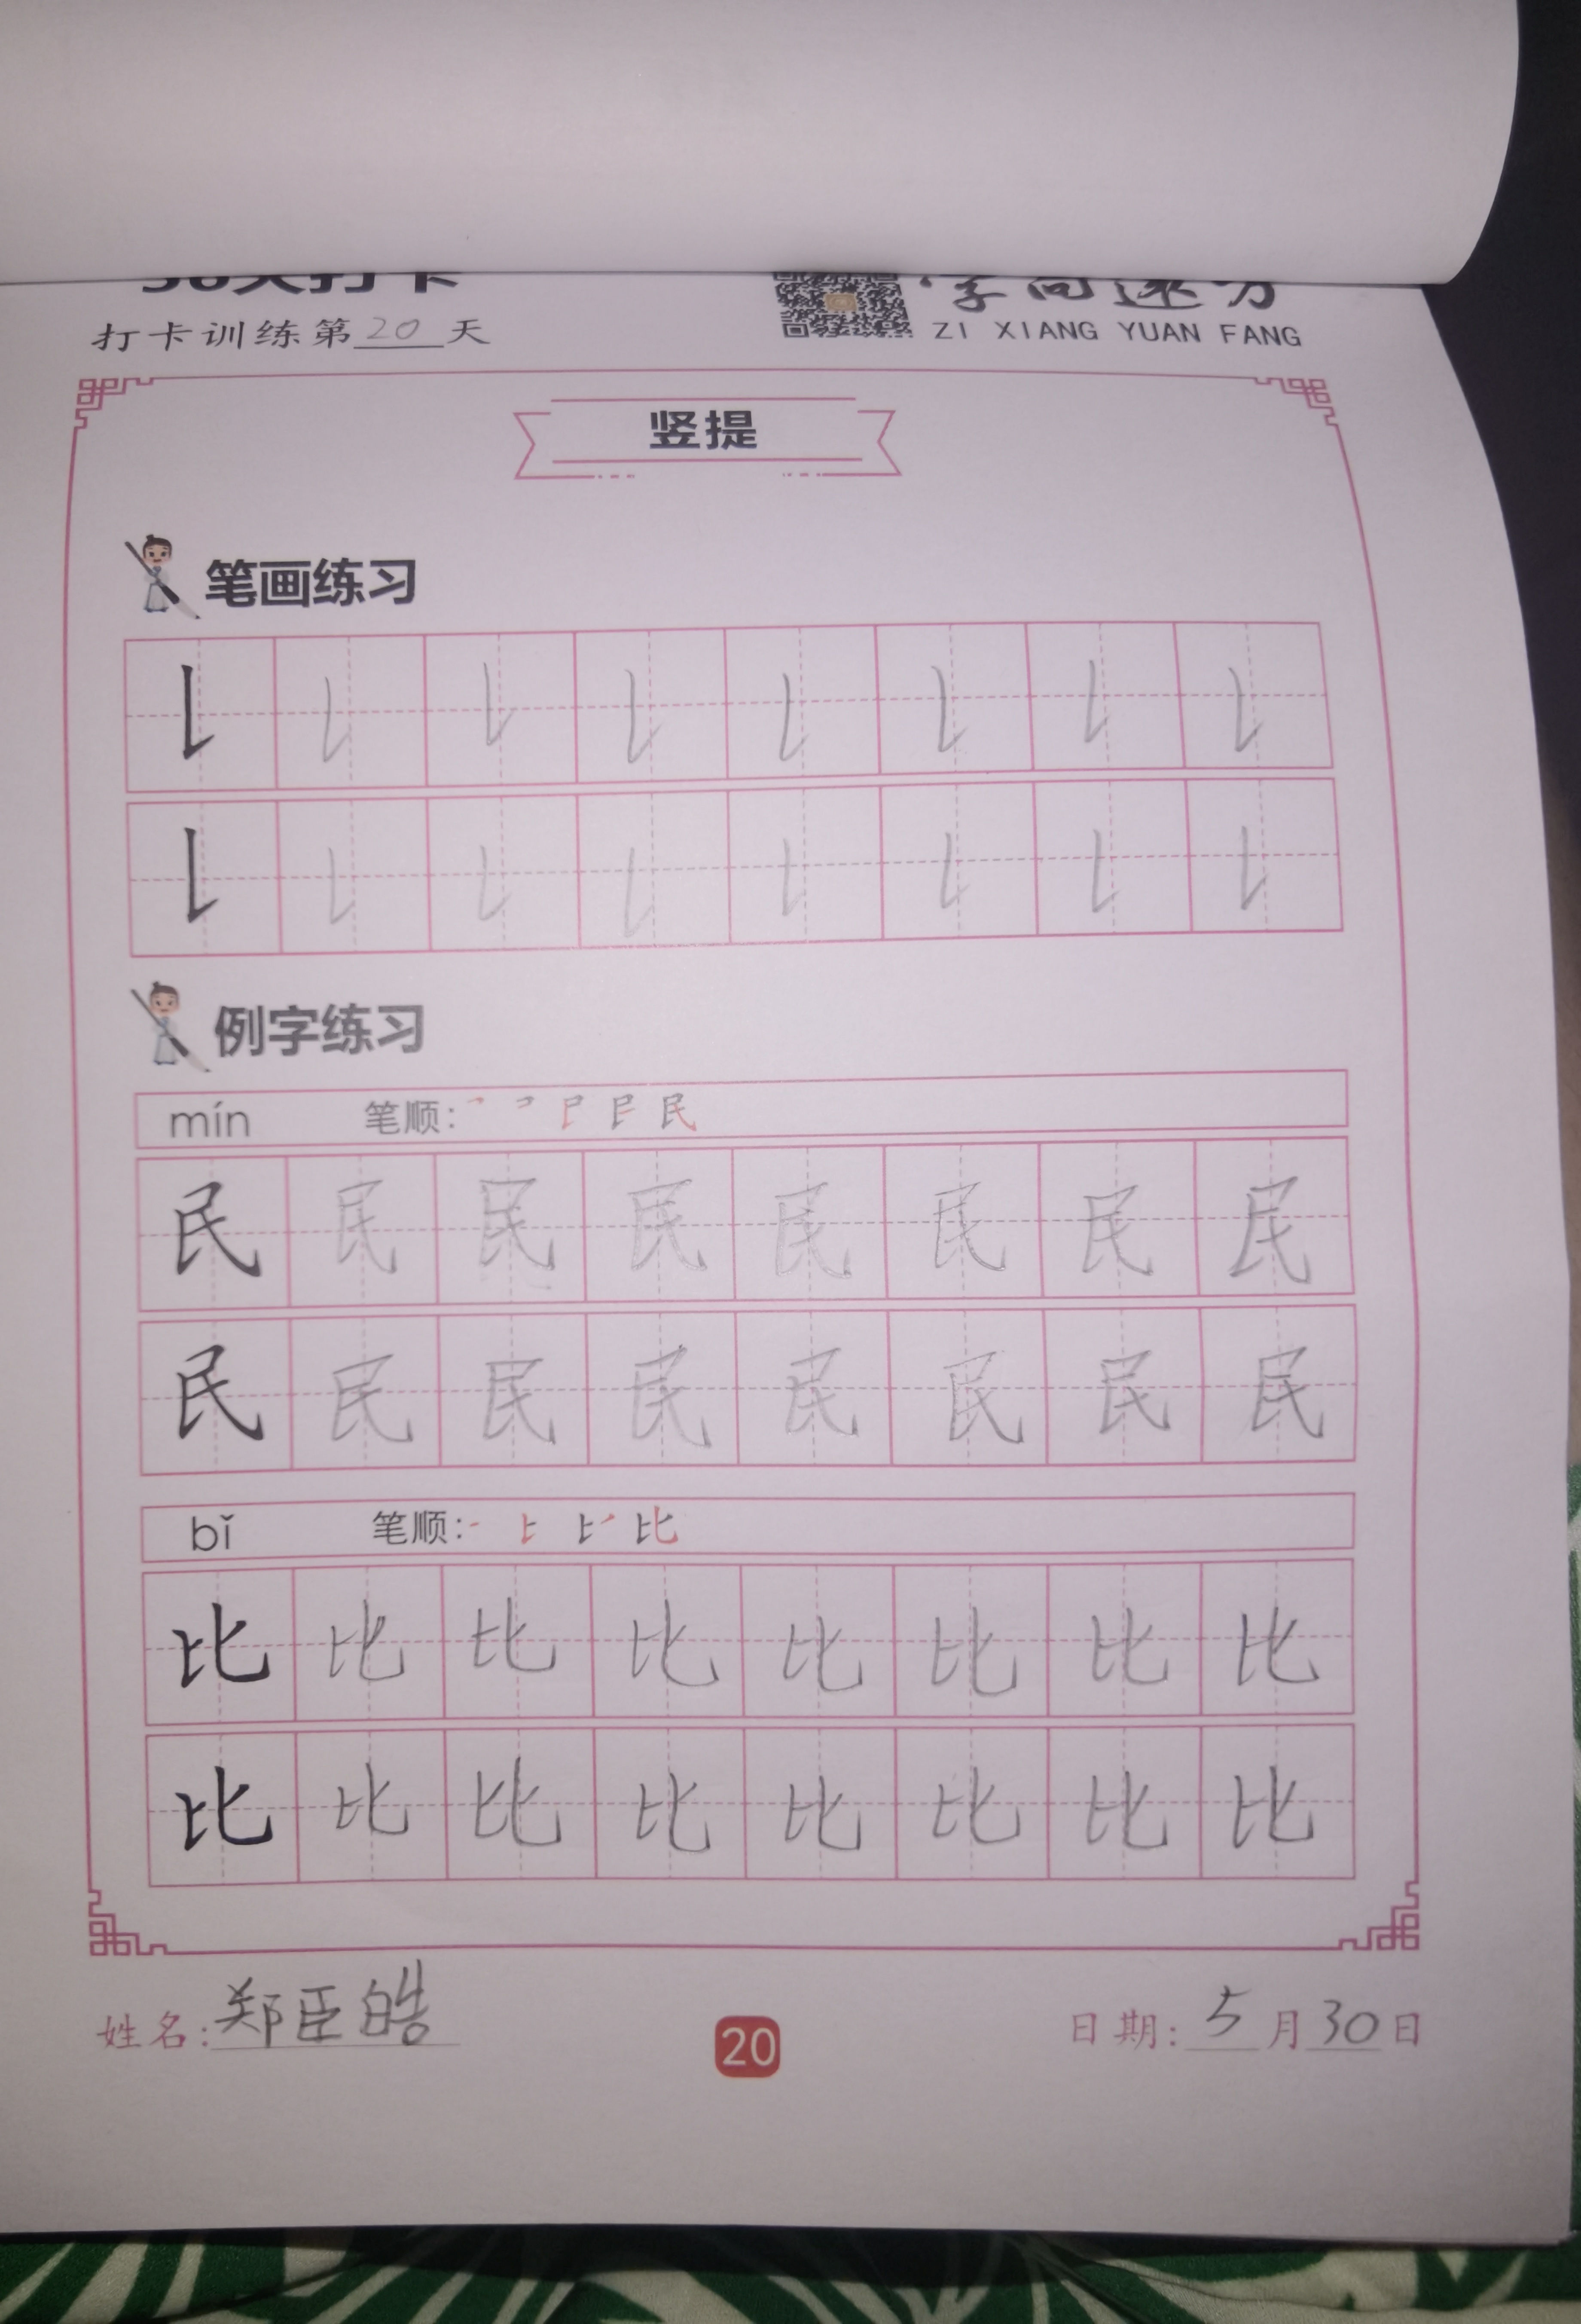 打卡训练第20天
ZI XIANG YUAN FANG
竖提
笔画练习
例字练习
mín 笔顺:
民 民 民 民 民 民 民 民
民 民 民 民 民 民 民 民
bǐ 笔顺:
比 比 比 比 比 比 比 比
比 比 比 比 比 比 比 比
姓名:郑臣皓 20 日期:5月30日